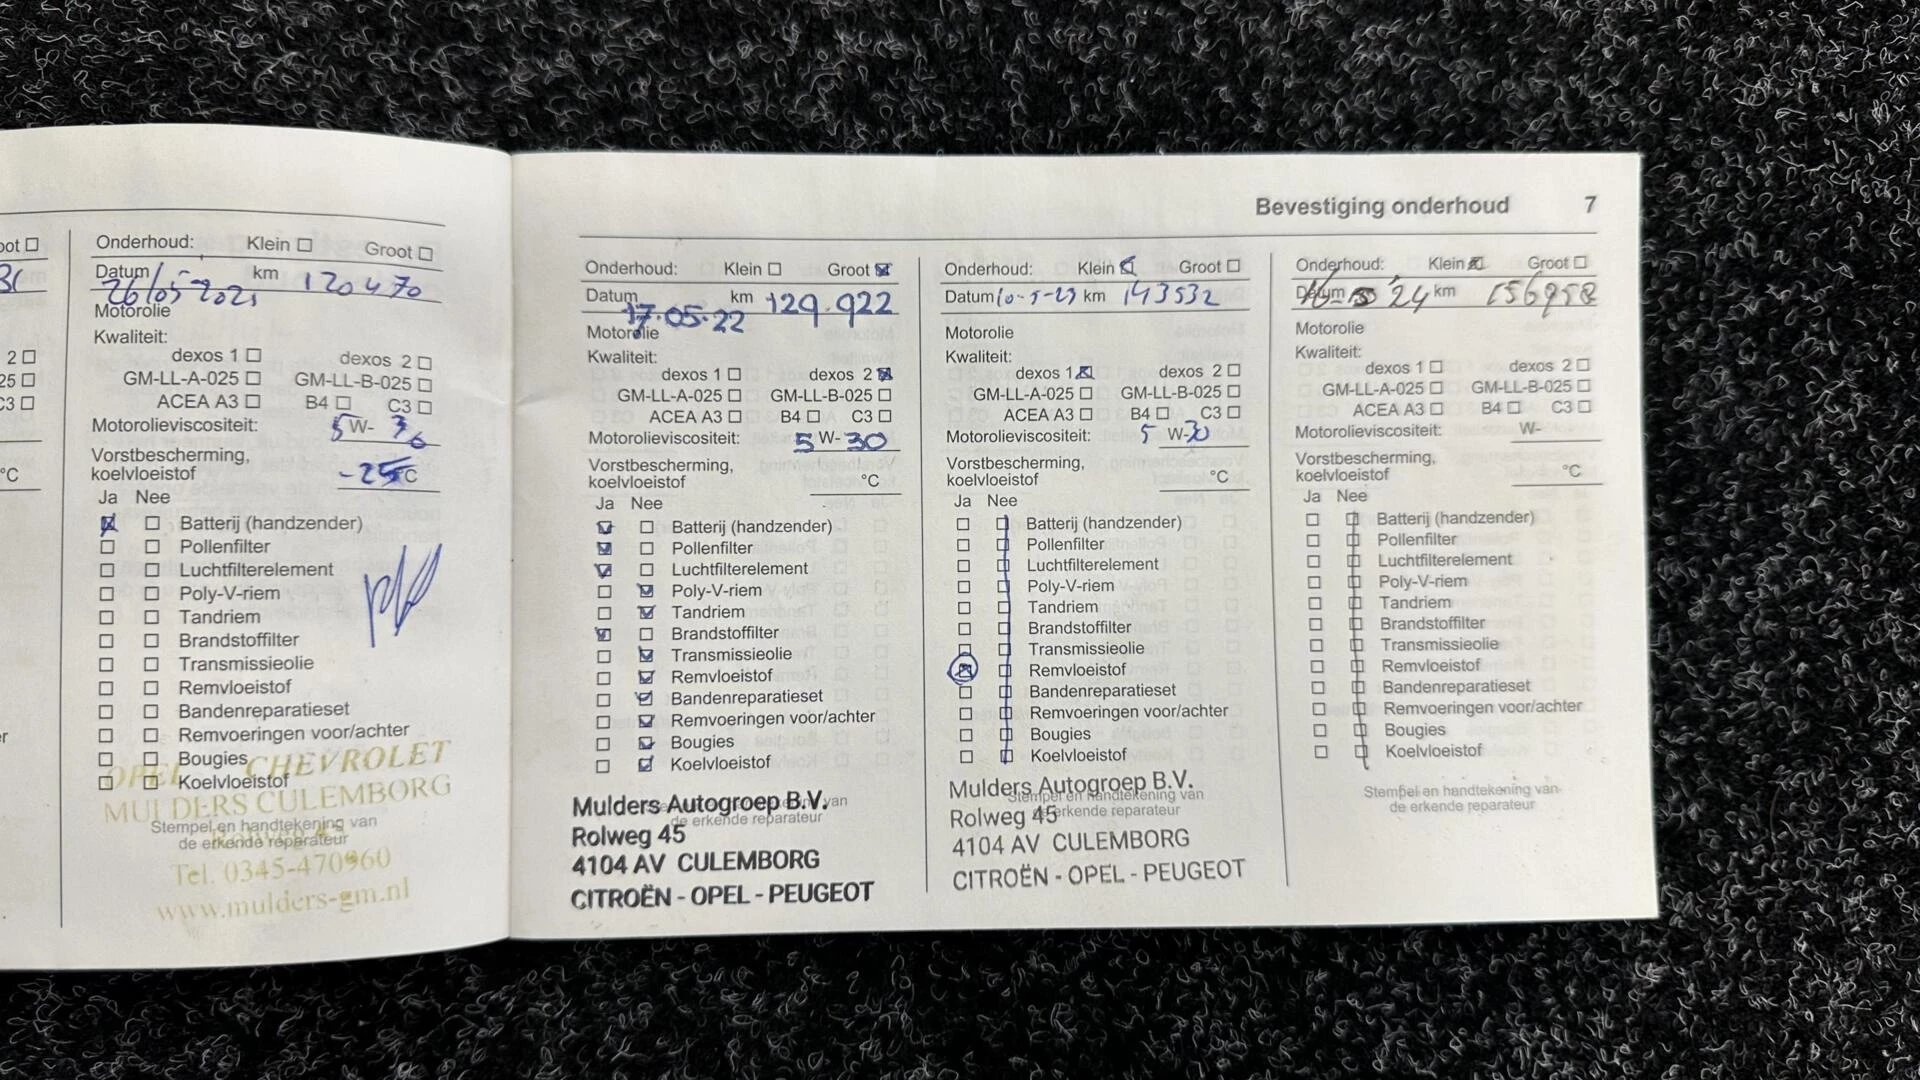 Bevestiging onderhoud 7
oot ☐
2 ☐
25 ☐
C3 ☐
°C
r
Onderhoud: Klein ☐ Groot ☐
Datum 26/05-2021 km 120470
Motorolie
Kwaliteit:
dexos 1 ☐ dexos 2 ☐
GM-LL-A-025 ☐ GM-LL-B-025 ☐
ACEA A3 ☐ B4 ☐ C3 ☐
Motorolieviscositeit: 5 W- 30
Vorstbescherming,
koelvloeistof -25 °C
Ja Nee
☒ ☐ Batterij (handzender)
☐ ☐ Pollenfilter
☐ ☐ Luchtfilterelement
☐ ☐ Poly-V-riem
☐ ☐ Tandriem
☐ ☐ Brandstoffilter
☐ ☐ Transmissieolie
☐ ☐ Remvloeistof
☐ ☐ Bandenreparatieset
☐ ☐ Remvoeringen voor/achter
☐ ☐ Bougies
☐ ☐ Koelvloeistof
OPEL CHEVROLET
MULDERS CULEMBORG
Stempel en handtekening van
de erkende reparateur
Tel. 0345-470960
www.mulders-gm.nl
Onderhoud: Klein ☐ Groot ☒
Datum 17.05.22 km 129.922
Motorolie
Kwaliteit:
dexos 1 ☐ dexos 2 ☒
GM-LL-A-025 ☐ GM-LL-B-025 ☐
ACEA A3 ☐ B4 ☐ C3 ☐
Motorolieviscositeit: 5 W- 30
Vorstbescherming,
koelvloeistof °C
Ja Nee
☑ ☐ Batterij (handzender)
☑ ☐ Pollenfilter
☑ ☐ Luchtfilterelement
☐ ☑ Poly-V-riem
☐ ☑ Tandriem
☑ ☐ Brandstoffilter
☐ ☑ Transmissieolie
☐ ☑ Remvloeistof
☐ ☑ Bandenreparatieset
☐ ☑ Remvoeringen voor/achter
☐ ☑ Bougies
☐ ☑ Koelvloeistof
Stempel en handtekening van
de erkende reparateur
Mulders Autogroep B.V.
Rolweg 45
4104 AV CULEMBORG
CITROËN - OPEL - PEUGEOT
Onderhoud: Klein ☒ Groot ☐
Datum 10-5-23 km 143532
Motorolie
Kwaliteit:
dexos 1 ☒ dexos 2 ☐
GM-LL-A-025 ☐ GM-LL-B-025 ☐
ACEA A3 ☐ B4 ☐ C3 ☐
Motorolieviscositeit: 5 W- 30
Vorstbescherming,
koelvloeistof °C
Ja Nee
☐ ☐ Batterij (handzender)
☐ ☐ Pollenfilter
☐ ☐ Luchtfilterelement
☐ ☐ Poly-V-riem
☐ ☐ Tandriem
☐ ☐ Brandstoffilter
☐ ☐ Transmissieolie
☒ ☐ Remvloeistof
☐ ☐ Bandenreparatieset
☐ ☐ Remvoeringen voor/achter
☐ ☐ Bougies
☐ ☐ Koelvloeistof
Stempel en handtekening van
de erkende reparateur
Mulders Autogroep B.V.
Rolweg 45
4104 AV CULEMBORG
CITROËN - OPEL - PEUGEOT
Onderhoud: Klein ☒ Groot ☐
Datum 24 km 156958
Motorolie
Kwaliteit:
dexos 1 ☐ dexos 2 ☐
GM-LL-A-025 ☐ GM-LL-B-025 ☐
ACEA A3 ☐ B4 ☐ C3 ☐
Motorolieviscositeit: W-
Vorstbescherming,
koelvloeistof °C
Ja Nee
☐ ☐ Batterij (handzender)
☐ ☐ Pollenfilter
☐ ☐ Luchtfilterelement
☐ ☐ Poly-V-riem
☐ ☐ Tandriem
☐ ☐ Brandstoffilter
☐ ☐ Transmissieolie
☐ ☐ Remvloeistof
☐ ☐ Bandenreparatieset
☐ ☐ Remvoeringen voor/achter
☐ ☐ Bougies
☐ ☐ Koelvloeistof
Stempel en handtekening van
de erkende reparateur